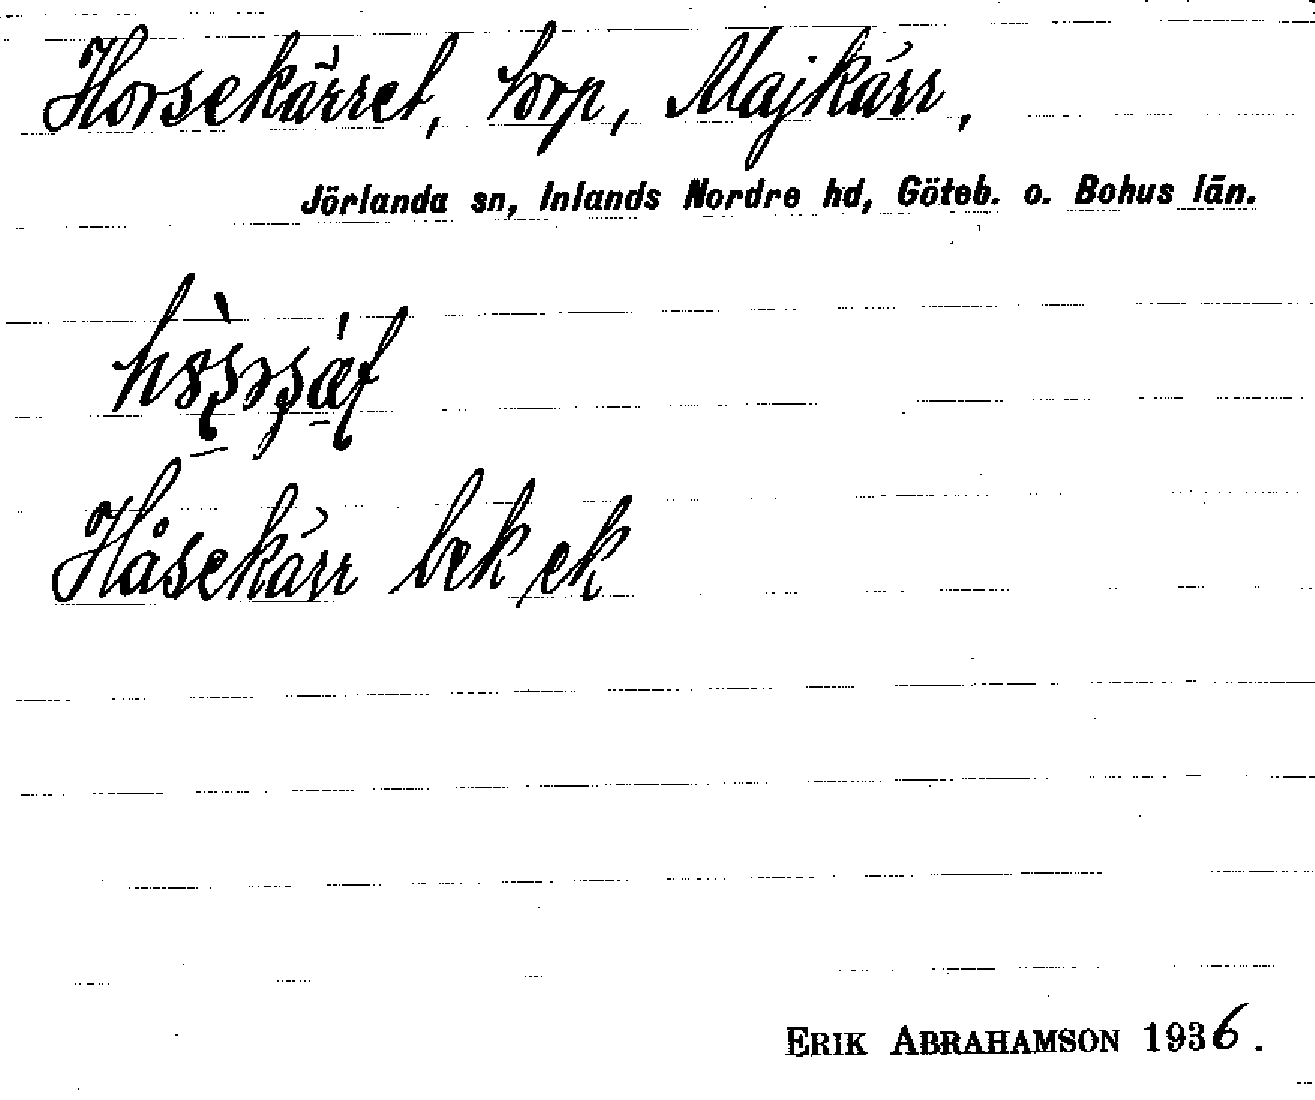 Horsekärret, torp, Majkärr,
Jörlanda sn, Inlands Nordre hd, Göteb. o. Bohus län.
Håsekärr bek ek
ERIK ABRAHAMSON 1936.